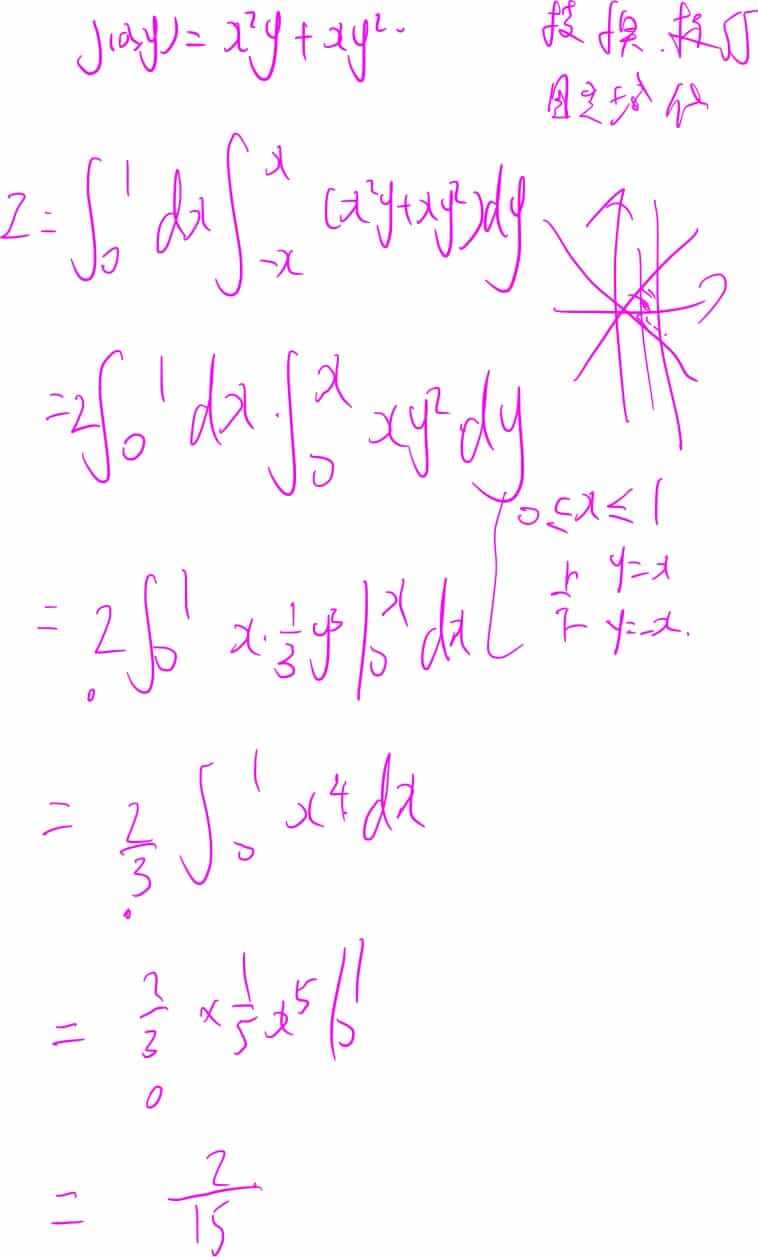 f(x,y) = x²y + xy².
I = ∫₀¹ dx ∫₋ₓˣ (x²y+xy²)dy
= 2∫₀¹ dx · ∫₀ˣ xy² dy
0 ≤ x ≤ 1
上 y=x
下 y=-x.
= 2∫₀¹ x · 1/3 y³ |₀ˣ dx
= 2/3 ∫₀¹ x⁴ dx
= 2/3 × 1/5 x⁵ |₀¹
= 2/15